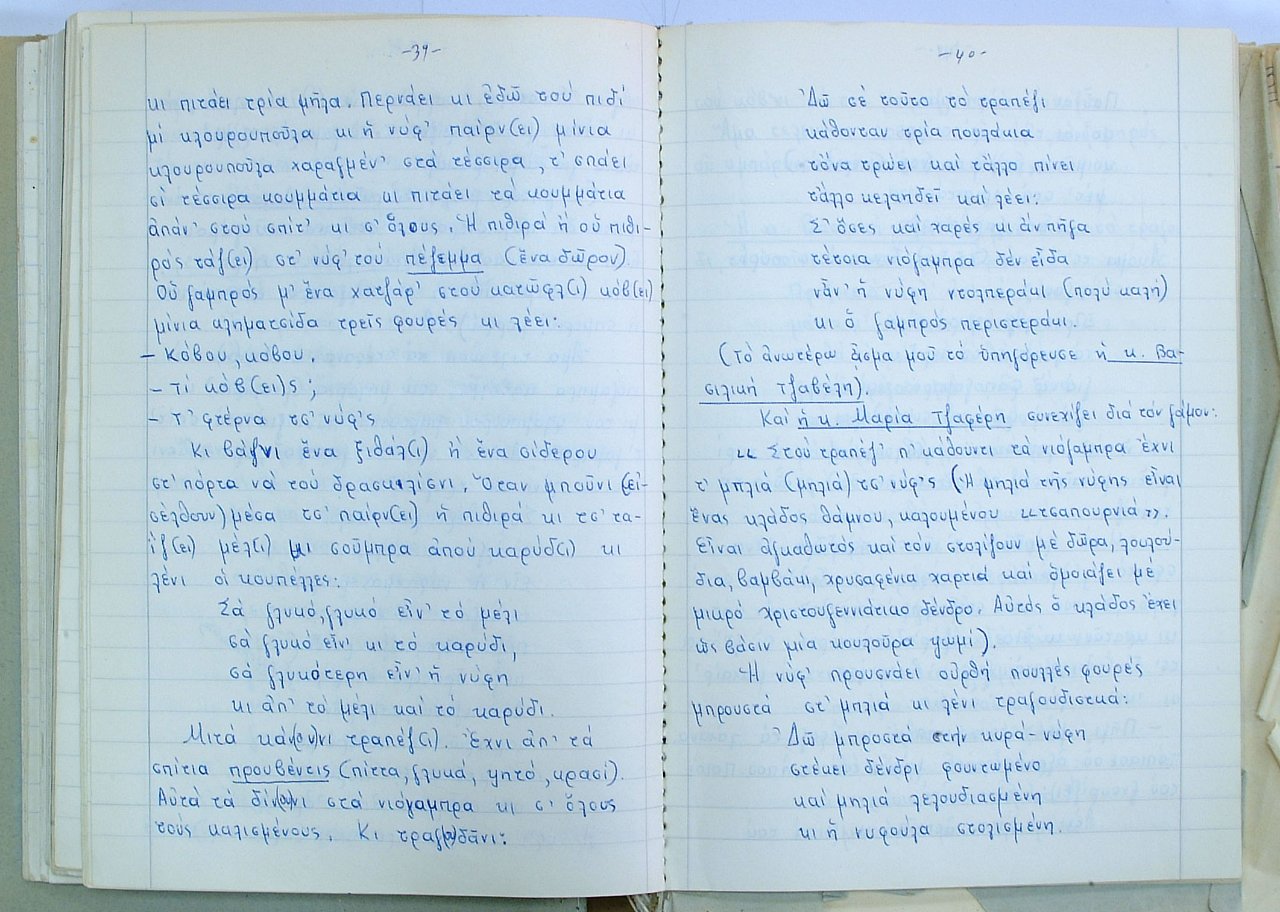 -39-
κι πιτάει τρία μῆλα. Περνάει κι ἐδῶ τού πιδί
μί κλουρουποῦλα κι ἡ νύφ' παίρν(ει) μίνια
κλουρουποῦλα χαραγμέν' στά τέσσιρα, τ' σπάει
σί τέσσιρα κουμμάτια κι πιτάει τά κουμμάτια
ἀπάν' στού σπίτ' κι σ' ὅλους. Ἡ πιθιρά ἤ οὑ πιθι-
ρός τάζ(ει) στ' νύφ' τού πέζεμμα (ἕνα δῶρον).
Οὑ γαμπρός μ' ἕνα χατζάρ' στού κατῶφλ(ι) κόβ(ει)
μίνια κληματσίδα τρεῖς φουρές κι λέει:
– Κόβου, κόβου.
– τί κόβ(ει)ς ;
– τ' φτέρνα τσ' νύφ'ς
Κι βάζνι ἕνα ξιθάλ(ι) ἤ ἕνα σίδερου
στ' πόρτα νά τού δρασκλίσνι. Ὅταν μποῦνι (εἰ-
σέλθουν) μέσα τσ' παίρν(ει) ἡ πιθιρά κι τσ' τα-
ΐζ(ει) μέλ(ι) μι σοῦμπρα ἀπού καρύδ(ι) κι
λένι οἱ κουπέλλες:
Σά γλυκό, γλυκό εἶν' τό μέλι
σά γλυκό εἶν' κι τό καρύδι,
σά γλυκότερη εἶν' ἡ νύφη
κι ἀπ' τό μέλι καί τό καρύδι.
Μιτά κάν(ου)νι τραπέζ(ι). Ἔχνι ἀπ' τά
σπίτια προυβέντις (πίττα, γλυκά, ψητό, κρασί).
Αὐτά τά δίν(ου)νι στά νιόγαμπρα κι σ' ὅλους
τούς καλισμένους. Κι τραγ(ου)δᾶνι:
-40-
Ἀδῶ σέ τοῦτο τό τραπέζι
κάθονταν τρία πουλάκια
τὄνα τρώει καί τἄλλο πίνει
τἄλλο κελαηδεῖ καί λέει:
Σ' ὅσες καί χαρές κι ἄν πῆγα
τέτοια νιόγαμπρα δέν εἶδα
νἆν' ἡ νύφη ντολπεράκι (πολύ καλή)
κι ὁ γαμπρός περιστεράκι.
(Τό ἀνωτέρω ᾆσμα μοῦ τό ὑπηγόρευσε ἡ κ. Βα-
σιλική Τζαβέλη).
Καί ἡ κ. Μαρία Τζαφέρη συνεχίζει διά τόν γάμον:
"Στού τραπέζ' π' κάθουντι τά νιόγαμπρα ἔχνι
τ' μπλιά (μηλιά) τσ' νύφ'ς (Ἡ μηλιά τῆς νύφης εἶναι
ἕνας κλάδος θάμνου, καλουμένου "τσαπουρνιά".
Εἶναι ἀγκαθωτός καί τόν στολίζουν μέ δῶρα, λουλού-
δια, βαμβάκι, χρυσαφένια χαρτιά καί ὁμοιάζει μέ
μικρό χριστουγεννιάτικο δένδρο. Αὐτός ὁ κλάδος ἔχει
ὡς βάσιν μία κουλούρα ψωμί).
Ἡ νύφ' προυσκνάει οὐρθή πουλλές φουρές
μπρουστά στ' μπλιά κι λένι τραγουδιστκά:
Ἀδῶ μπροστά στήν κυρά-νύφη
στέκει δένδρι φουντωμένο
καί μηλιά λελουδιασμένη
κι ἡ νυφούλα στολισμένη.